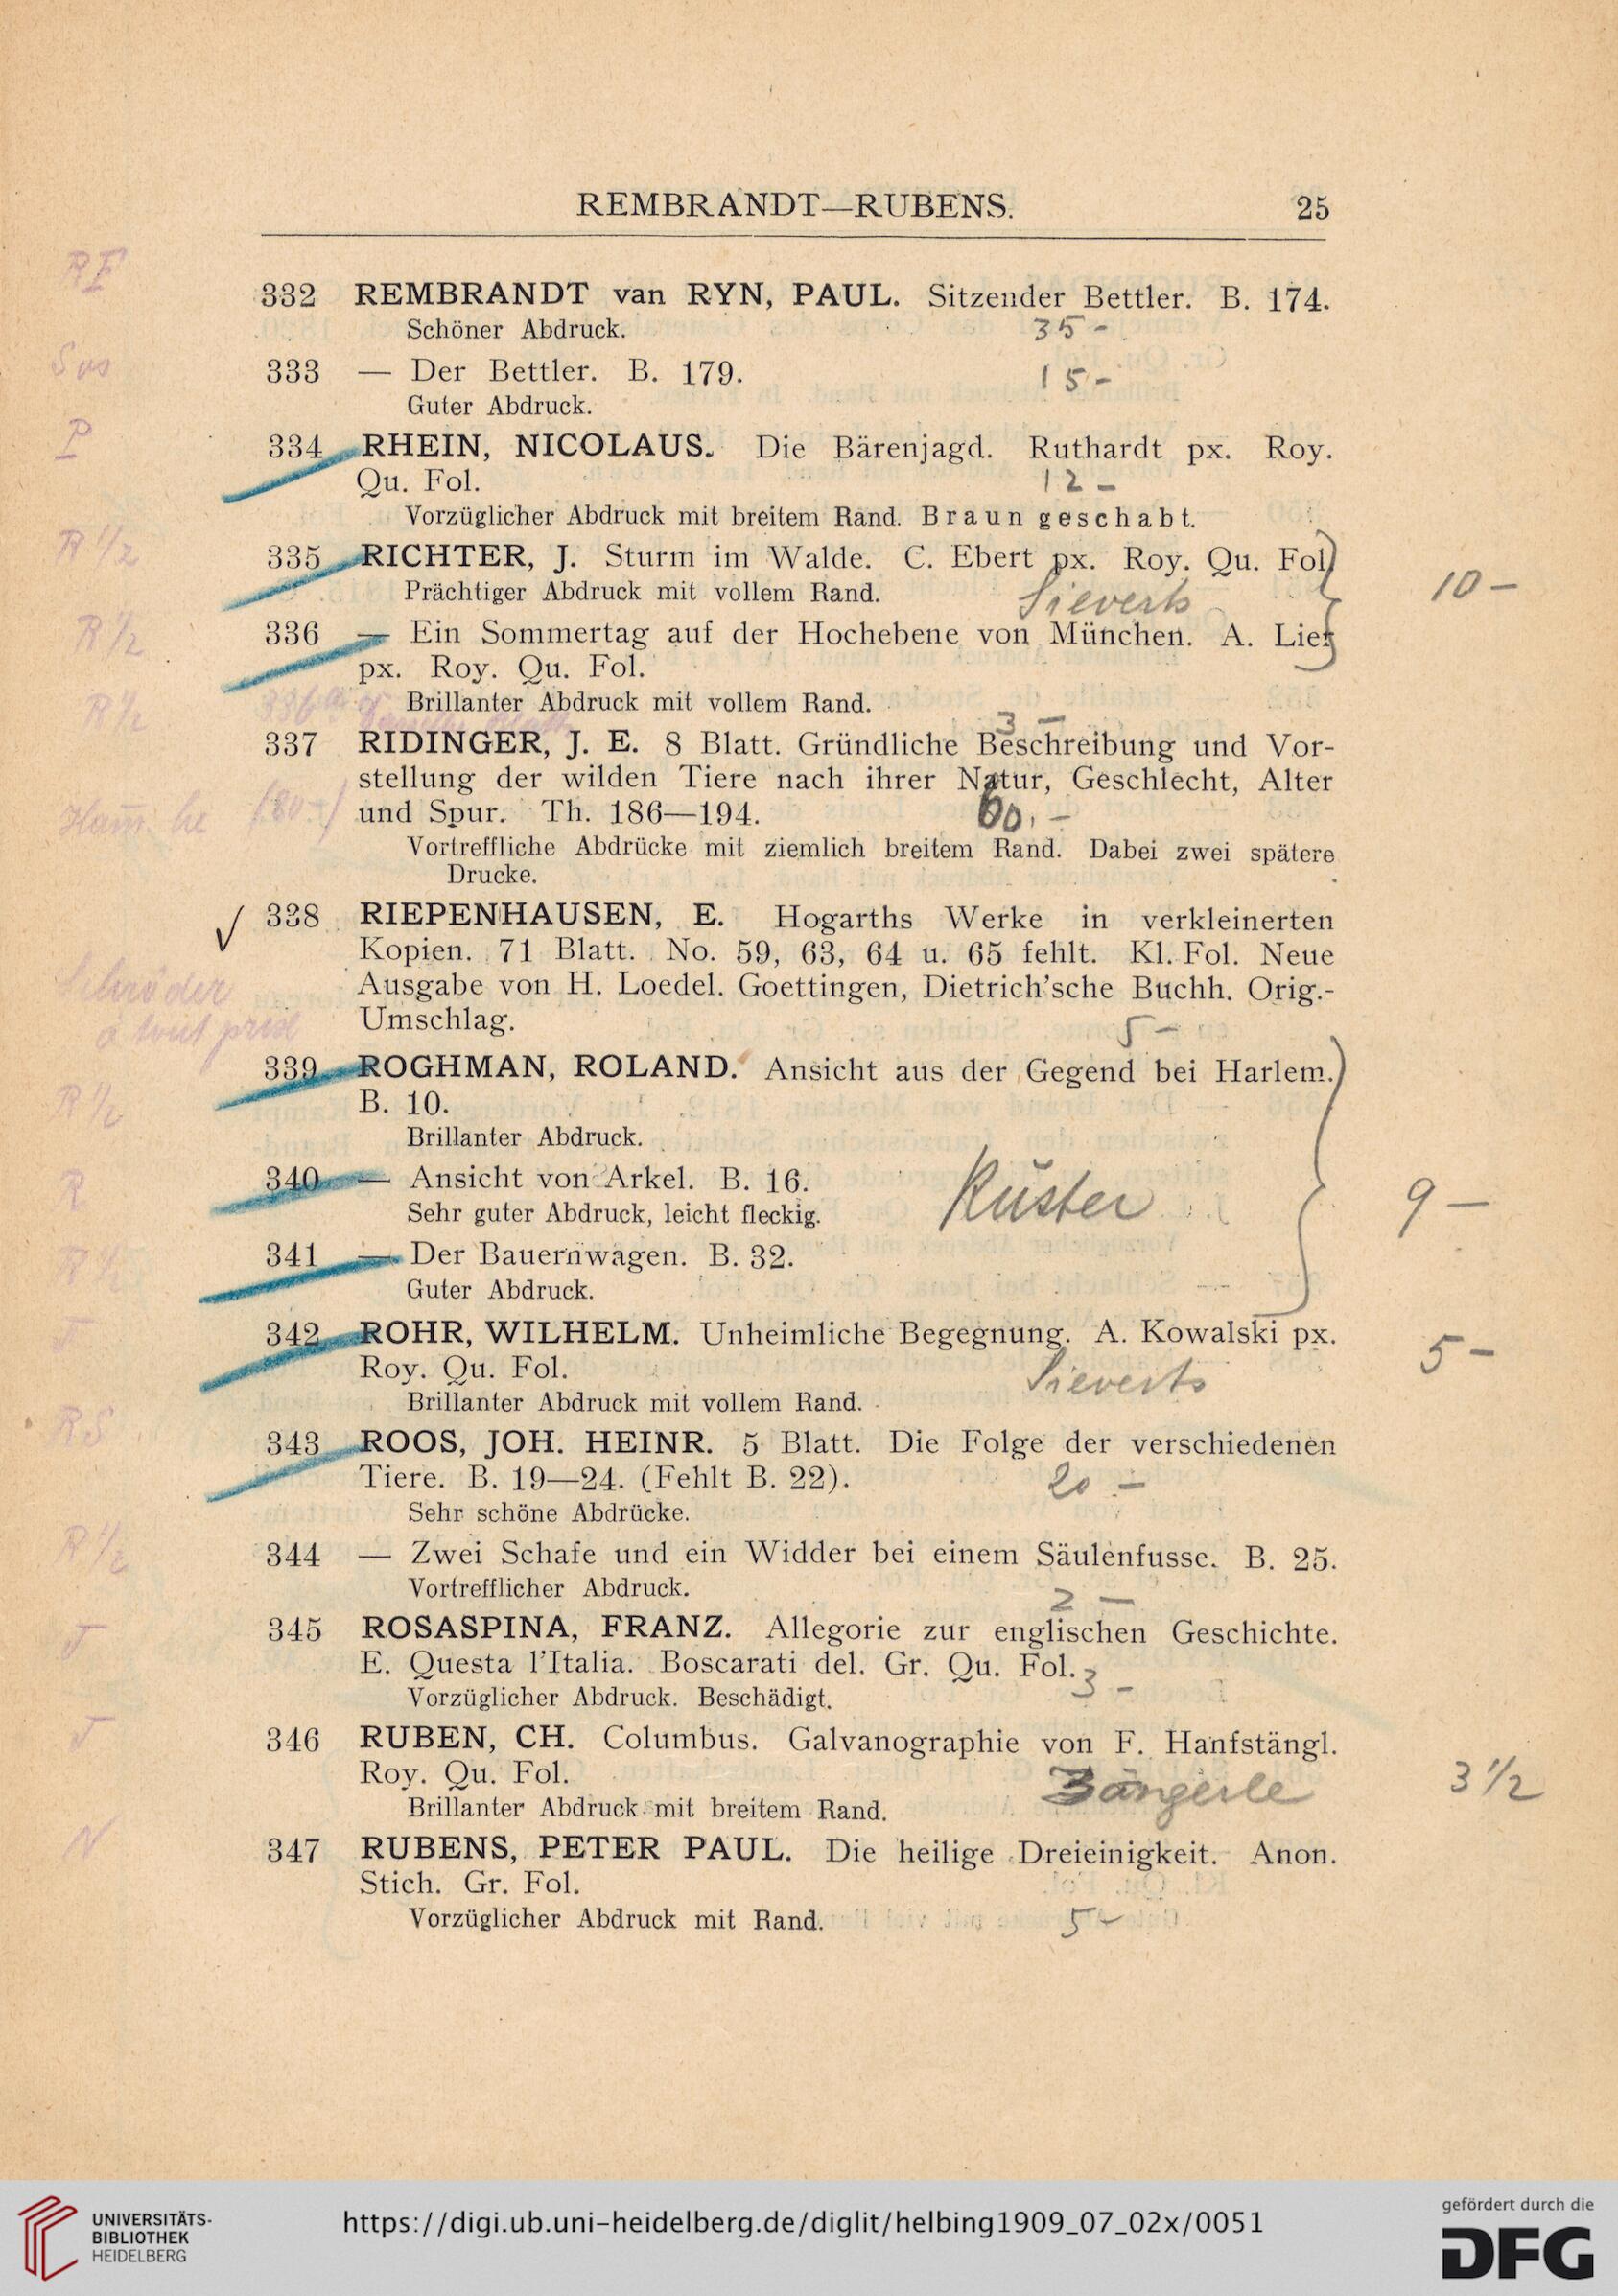 REMBRANDT—RUBENS. 25
332 REMBRANDT van RYN, PAUL. Sitzender Bettler. B. 174.
Schöner Abdruck. 35 -
333 — Der Bettler. B. 179. 15 -
Guter Abdruck.
334 RHEIN, NICOLAUS. Die Bärenjagd. Ruthardt px. Roy.
Qu. Fol. 12 -
Vorzüglicher Abdruck mit breitem Rand. Braun geschabt.
335 RICHTER, J. Sturm im Walde. C. Ebert px. Roy. Qu. Fol
Prächtiger Abdruck mit vollem Rand. Sieverts 10 -
336 — Ein Sommertag auf der Hochebene von München. A. Lier
px. Roy. Qu. Fol.
Brillanter Abdruck mit vollem Rand.
3 -
337 RIDINGER, J. E. 8 Blatt. Gründliche Beschreibung und Vor-
stellung der wilden Tiere nach ihrer Natur, Geschlecht, Alter
und Spur. Th. 186—194. 60.-
Vortreffliche Abdrücke mit ziemlich breitem Rand. Dabei zwei spätere
Drucke.
✓ 338 RIEPENHAUSEN, E. Hogarths Werke in verkleinerten
Kopien. 71 Blatt. No. 59, 63, 64 u. 65 fehlt. Kl. Fol. Neue
Ausgabe von H. Loedel. Goettingen, Dietrich'sche Buchh. Orig.-
Schröder
Umschlag. 5 -
à tout prix
339 ROGHMAN, ROLAND. Ansicht aus der Gegend bei Harlem.
B. 10.
R 1/2
Brillanter Abdruck.
340 — Ansicht von Arkel. B. 16.
R
Sehr guter Abdruck, leicht fleckig. Küster 9 -
341 — Der Bauernwagen. B. 32.
R 1/2
Guter Abdruck.
342 ROHR, WILHELM. Unheimliche Begegnung. A. Kowalski px. 5 -
Roy. Qu. Fol. Sieverts
Brillanter Abdruck mit vollem Rand.
RS
343 ROOS, JOH. HEINR. 5 Blatt. Die Folge der verschiedenen
Tiere. B. 19—24. (Fehlt B. 22). 20 -
Sehr schöne Abdrücke.
R 1/2
344 — Zwei Schafe und ein Widder bei einem Säulenfusse. B. 25.
Vortrefflicher Abdruck. 2 —
345 ROSASPINA, FRANZ. Allegorie zur englischen Geschichte.
E. Questa l'Italia. Boscarati del. Gr. Qu. Fol. 3 -
Vorzüglicher Abdruck. Beschädigt.
346 RUBEN, CH. Columbus. Galvanographie von F. Hanfstängl.
Roy. Qu. Fol. Zängerle 3 1/2
Brillanter Abdruck mit breitem Rand.
N
347 RUBENS, PETER PAUL. Die heilige Dreieinigkeit. Anon.
Stich. Gr. Fol.
Vorzüglicher Abdruck mit Rand. 5 -
UNIVERSITÄTS-
BIBLIOTHEK
HEIDELBERG
https://digi.ub.uni-heidelberg.de/diglit/helbing1909_07_02x/0051
gefördert durch die
DFG